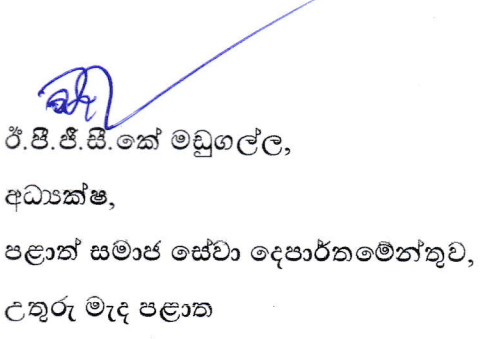 ඊ.පී.ජී.සී.කේ මඩුගල්ල,
අධ්‍යක්ෂ,
පළාත් සමාජ සේවා දෙපාර්තමේන්තුව,
උතුරු මැද පළාත